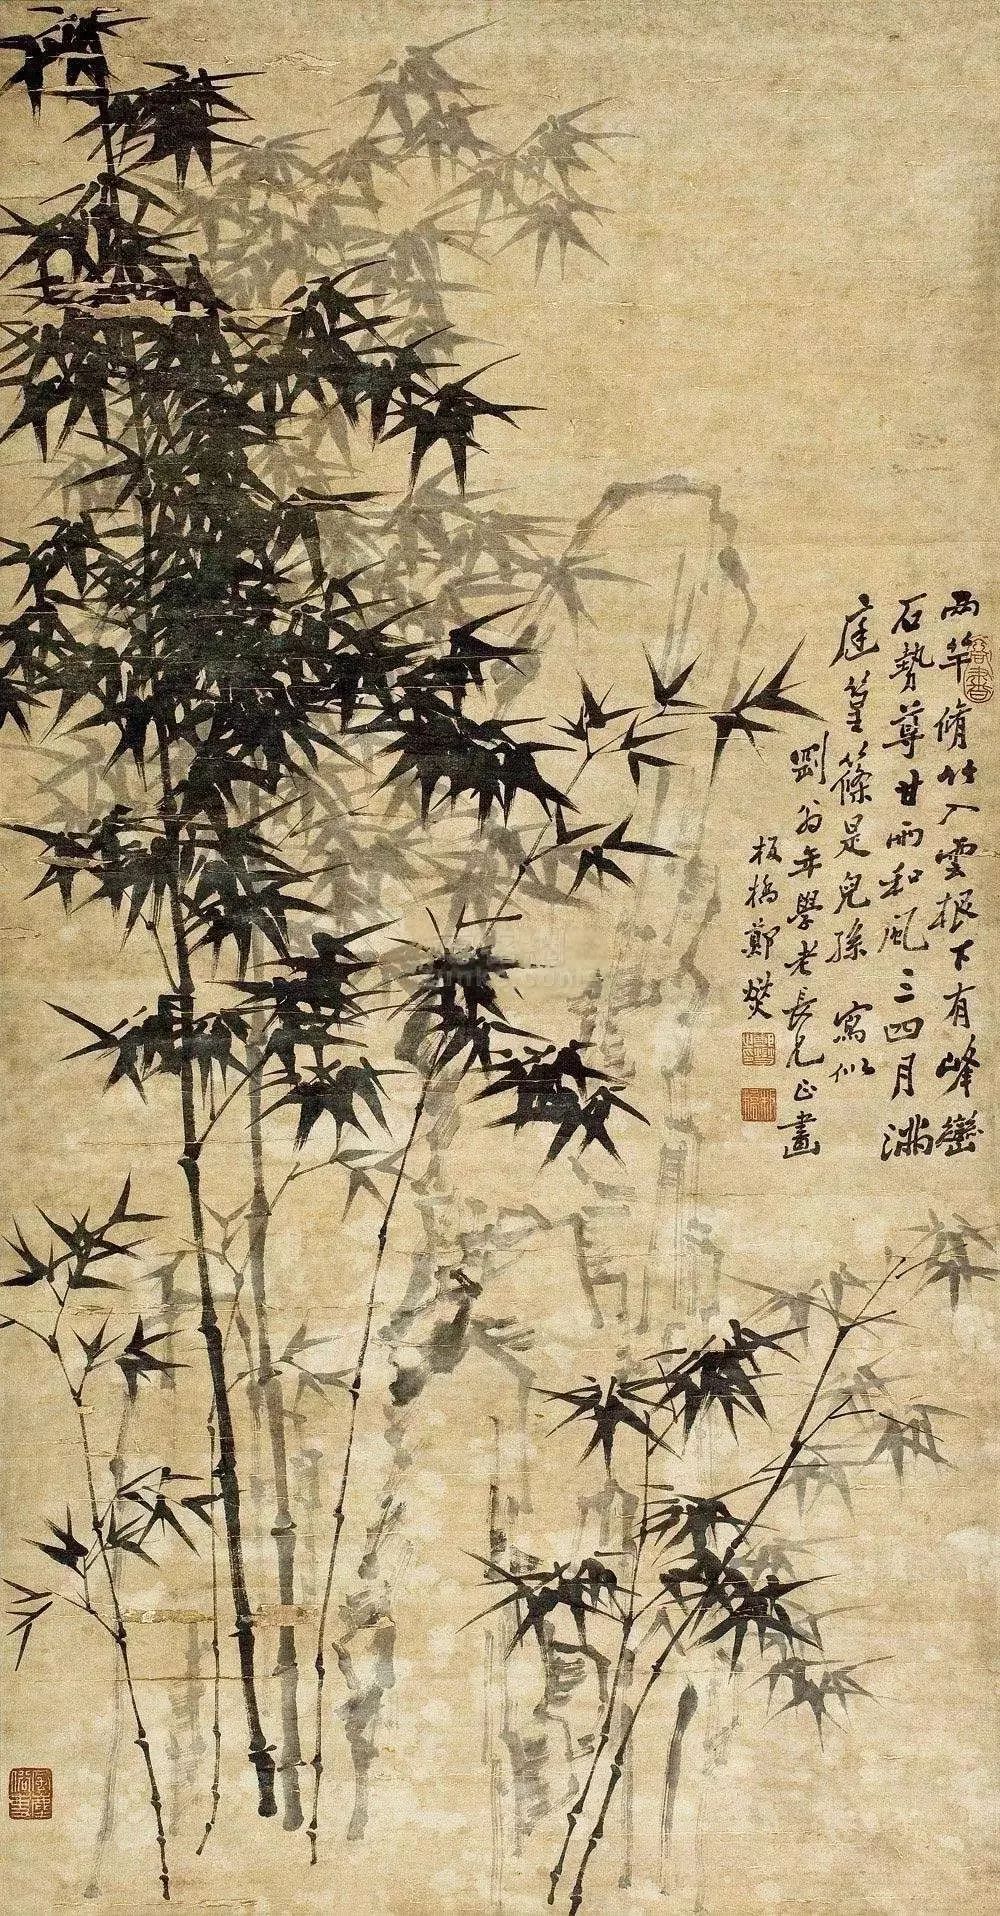 両竿脩竹入雲根下有峰巒
石勢尊甘雨和風三四月滿
庭篁篠是兒孫 寫似
劉翁年學老長兄正畫
板橋鄭燮